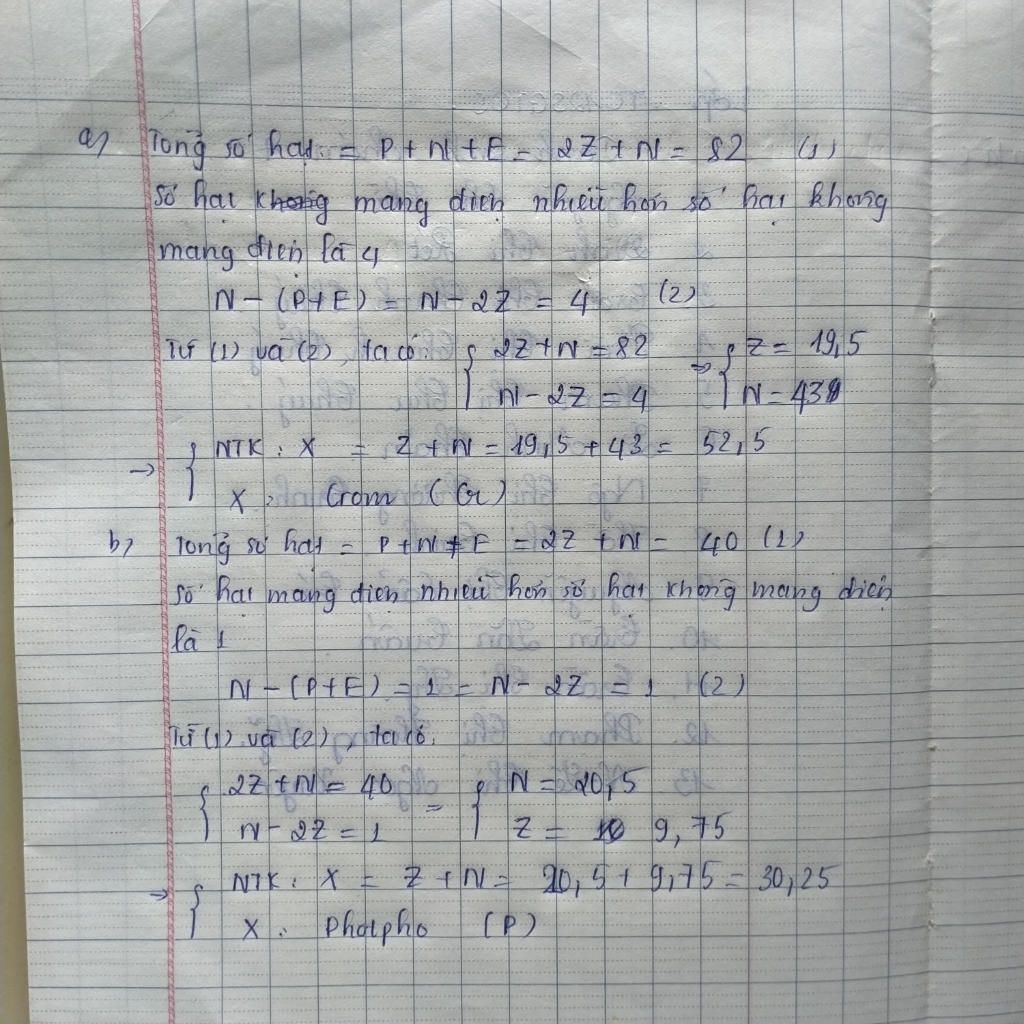 a) Tổng số hạt = P + N + E = 2Z + N = 82 (1)
Số hạt không mang điện nhiều hơn số hạt không
mang điện là 4
N - (P+E) = N - 2Z = 4 (2)
Từ (1) và (2), ta có: { 2Z + N = 82 => { Z = 19,5
N - 2Z = 4 N = 43
→ { NTK : X = Z + N = 19,5 + 43 = 52,5
X : Crom (Cr)
b) Tổng số hạt = P + N + E = 2Z + N = 40 (1)
Số hạt mang điện nhiều hơn số hạt không mang điện
là 1
N - (P+E) = 1 = N - 2Z = 1 (2)
Từ (1) và (2), ta có:
{ 2Z + N = 40 = { N = 20,5
N - 2Z = 1 Z = 9,75
→ { NTK : X = Z + N = 20,5 + 9,75 = 30,25
X : Photpho (P)